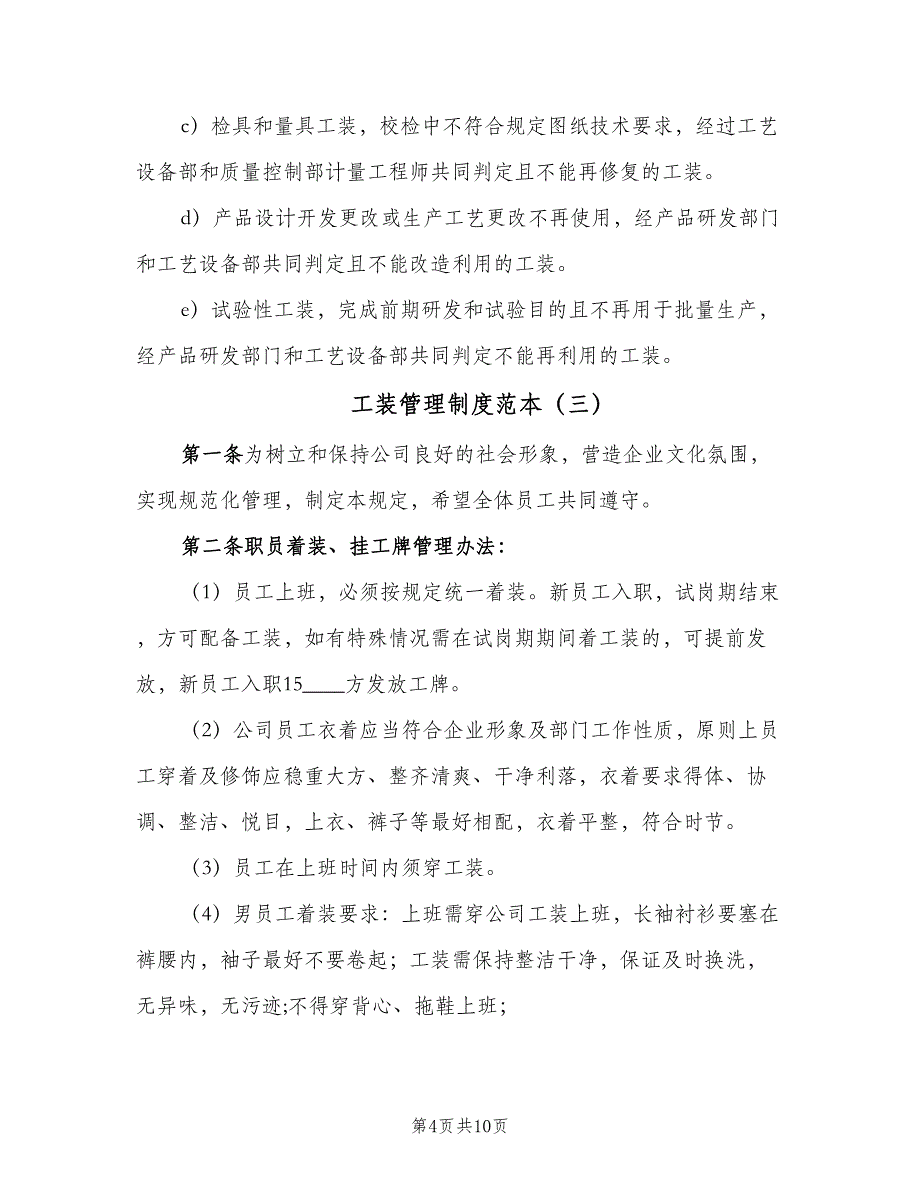 c）检具和量具工装，校检中不符合规定图纸技术要求，经过工艺
设备部和质量控制部计量工程师共同判定且不能再修复的工装。
d）产品设计开发更改或生产工艺更改不再使用，经产品研发部门
和工艺设备部共同判定且不能改造利用的工装。
e）试验性工装，完成前期研发和试验目的且不再用于批量生产，
经产品研发部门和工艺设备部共同判定不能再利用的工装。
工装管理制度范本（三）
第一条为树立和保持公司良好的社会形象，营造企业文化氛围，
实现规范化管理，制定本规定，希望全体员工共同遵守。
第二条职员着装、挂工牌管理办法：
（1）员工上班，必须按规定统一着装。新员工入职，试岗期结束
，方可配备工装，如有特殊情况需在试岗期期间着工装的，可提前发
放，新员工入职15____方发放工牌。
（2）公司员工衣着应当符合企业形象及部门工作性质，原则上员
工穿着及修饰应稳重大方、整齐清爽、干净利落，衣着要求得体、协
调、整洁、悦目，上衣、裤子等最好相配，衣着平整，符合时节。
（3）员工在上班时间内须穿工装。
（4）男员工着装要求：上班需穿公司工装上班，长袖衬衫要塞在
裤腰内，袖子最好不要卷起；工装需保持整洁干净，保证及时换洗，
无异味，无污迹;不得穿背心、拖鞋上班；
第4页共10页